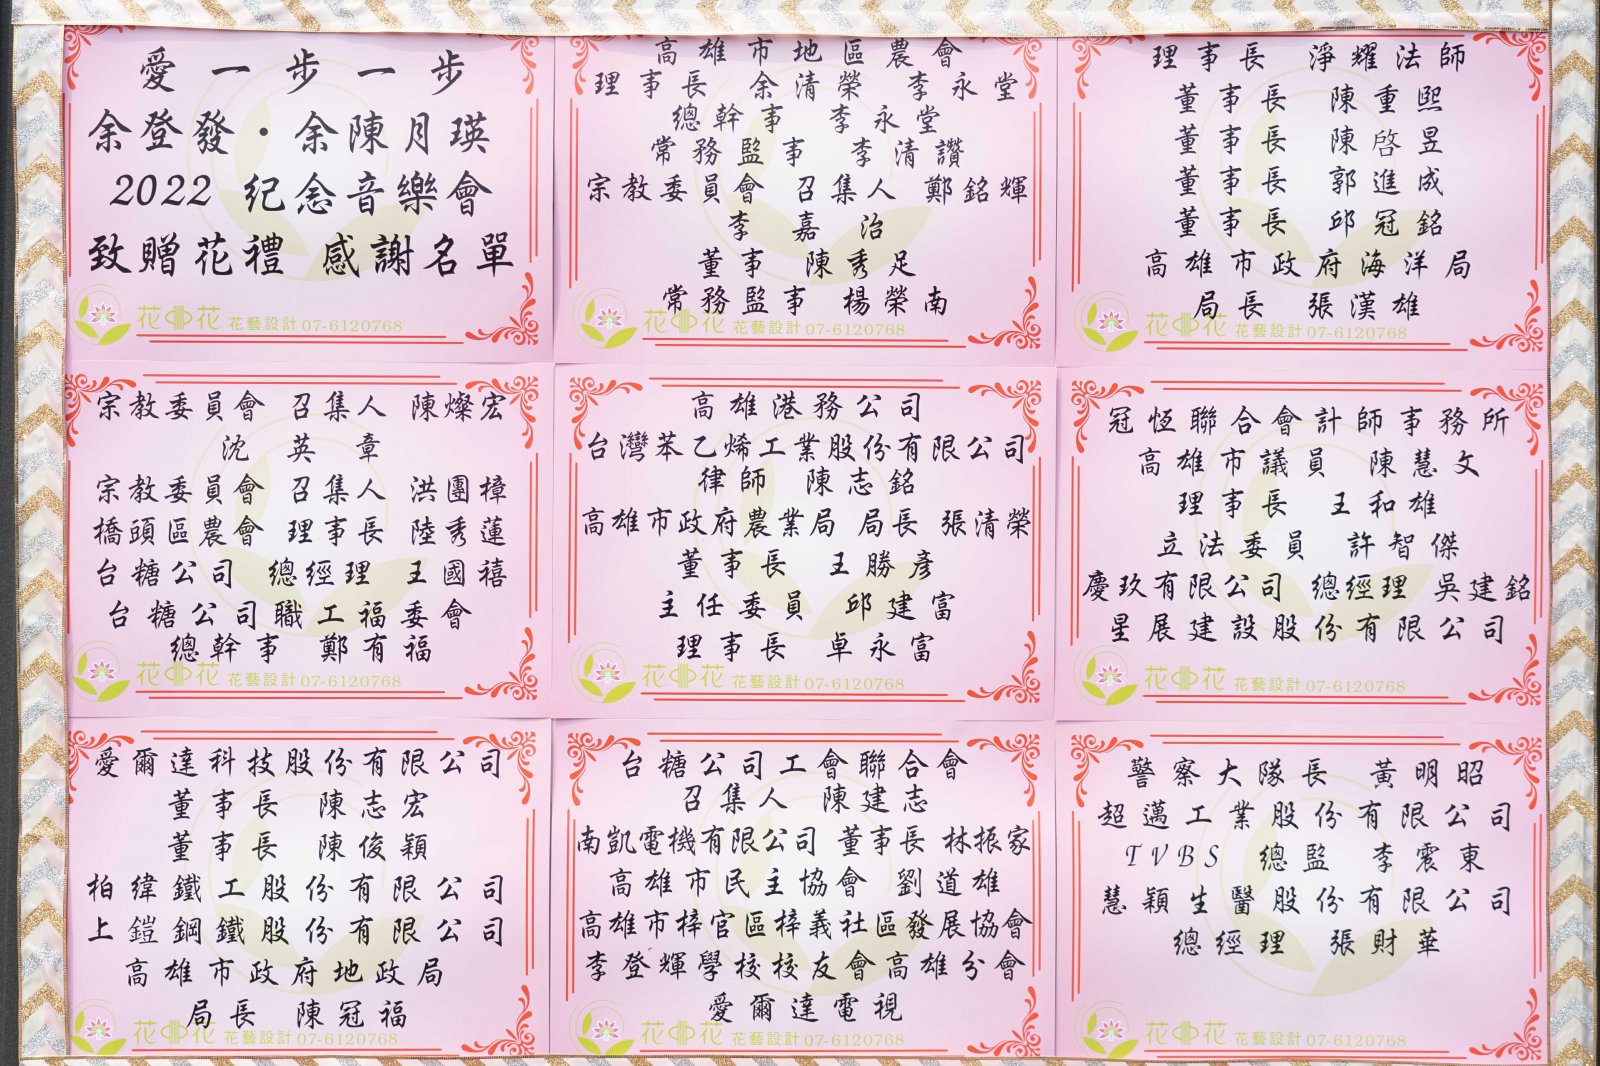 愛一步一步
余登發・余陳月瑛
2022 紀念音樂會
致贈花禮 感謝名單
花中花 花藝設計 07-6120768
高雄市地區農會
理事長 余清榮 李永堂
總幹事 李永堂
常務監事 李清讚
宗教委員會 召集人 鄭銘輝
李嘉治
董事 陳秀足
常務監事 楊榮南
花中花 花藝設計 07-6120768
理事長 淨耀法師
董事長 陳重熙
董事長 陳啓昱
董事長 郭進成
董事長 邱冠銘
高雄市政府海洋局
局長 張漢雄
花中花 花藝設計 07-6120768
宗教委員會 召集人 陳燦宏
沈英章
宗教委員會 召集人 洪團樟
橋頭區農會 理事長 陸秀蓮
台糖公司 總經理 王國禧
台糖公司職工福委會
總幹事 鄭有福
花中花 花藝設計 07-6120768
高雄港務公司
台灣苯乙烯工業股份有限公司
律師 陳志銘
高雄市政府農業局 局長 張清榮
董事長 王勝彥
主任委員 邱建富
理事長 卓永富
花中花 花藝設計 07-6120768
冠恆聯合會計師事務所
高雄市議員 陳慧文
理事長 王和雄
立法委員 許智傑
慶玖有限公司 總經理 吳建銘
星展建設股份有限公司
花中花 花藝設計 07-6120768
愛爾達科技股份有限公司
董事長 陳志宏
董事長 陳俊穎
柏緯鐵工股份有限公司
上鎧鋼鐵股份有限公司
高雄市政府地政局
局長 陳冠福
花中花 花藝設計 07-6120768
台糖公司工會聯合會
召集人 陳建志
南凱電機有限公司 董事長 林振家
高雄市民主協會 劉道雄
高雄市梓官區梓義社區發展協會
李登輝學校校友會高雄分會
愛爾達電視
花中花 花藝設計 07-6120768
警察大隊長 黃明昭
超邁工業股份有限公司
TVBS 總監 李震東
慧穎生醫股份有限公司
總經理 張財華
花中花 花藝設計 07-6120768